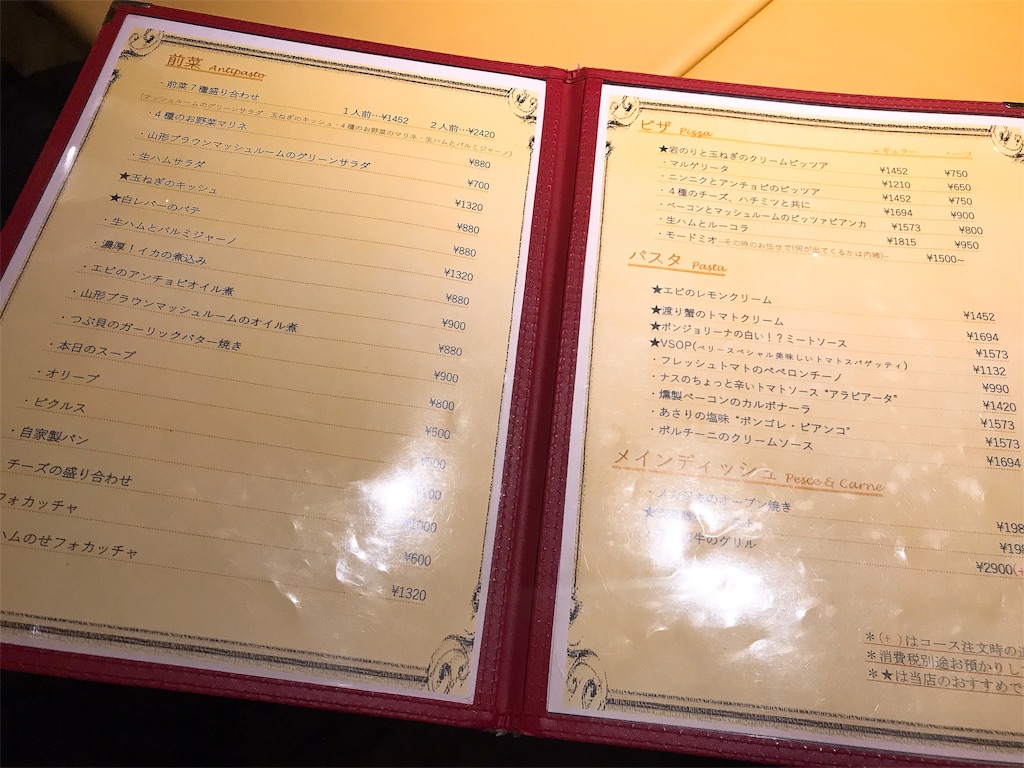 前菜 Antipasto
・前菜7種盛り合わせ 1人前…¥1452 2人前…¥2420
(マッシュルームのグリーンサラダ・玉ねぎのキッシュ・4種のお野菜のマリネ・生ハムとパルミジャーノ)
・4種のお野菜マリネ ¥880
・山形ブラウンマッシュルームのグリーンサラダ ¥700
・生ハムサラダ ¥1320
★玉ねぎのキッシュ ¥880
★白レバーのパテ ¥880
・生ハムとパルミジャーノ ¥1320
・濃厚!イカの煮込み ¥880
・エビのアンチョビオイル煮 ¥900
・山形ブラウンマッシュルームのオイル煮 ¥880
・つぶ貝のガーリックバター焼き ¥900
・本日のスープ ¥800
・オリーブ ¥500
・ピクルス
・自家製パン
チーズの盛り合わせ
フォカッチャ ¥600
ハムのせフォカッチャ ¥1320
ピザ Pizza
レギュラー ハーフ
★岩のりと玉ねぎのクリームピッツア ¥1452 ¥750
・マルゲリータ ¥1210 ¥650
・ニンニクとアンチョビのピッツア ¥1452 ¥750
・4種のチーズ、ハチミツと共に ¥1694 ¥900
・ベーコンとマッシュルームのピッツァビアンカ ¥1573 ¥800
・生ハムとルーコラ ¥1815 ¥950
・モードミオ~その時のお任せで(何が出てくるかは内緒)~ ¥1500~
パスタ Pasta
★エビのレモンクリーム ¥1452
★渡り蟹のトマトクリーム ¥1694
★ボンジョリーナの白い!?ミートソース ¥1573
★VSOP(ベリースペシャル美味しいトマトスパゲッティ) ¥1132
・フレッシュトマトのペペロンチーノ ¥990
・ナスのちょっと辛いトマトソース“アラビアータ” ¥1420
・燻製ベーコンのカルボナーラ ¥1573
・あさりの塩味“ボンゴレ・ビアンコ” ¥1573
・ポルチーニのクリームソース ¥1694
メインディッシュ Pesce & Carne
・メカジキのオーブン焼き ¥198
★ ¥198
牛のグリル ¥2900(+
＊(+ )はコース注文時の
＊消費税別途お預かりし
＊★は当店のおすすめで